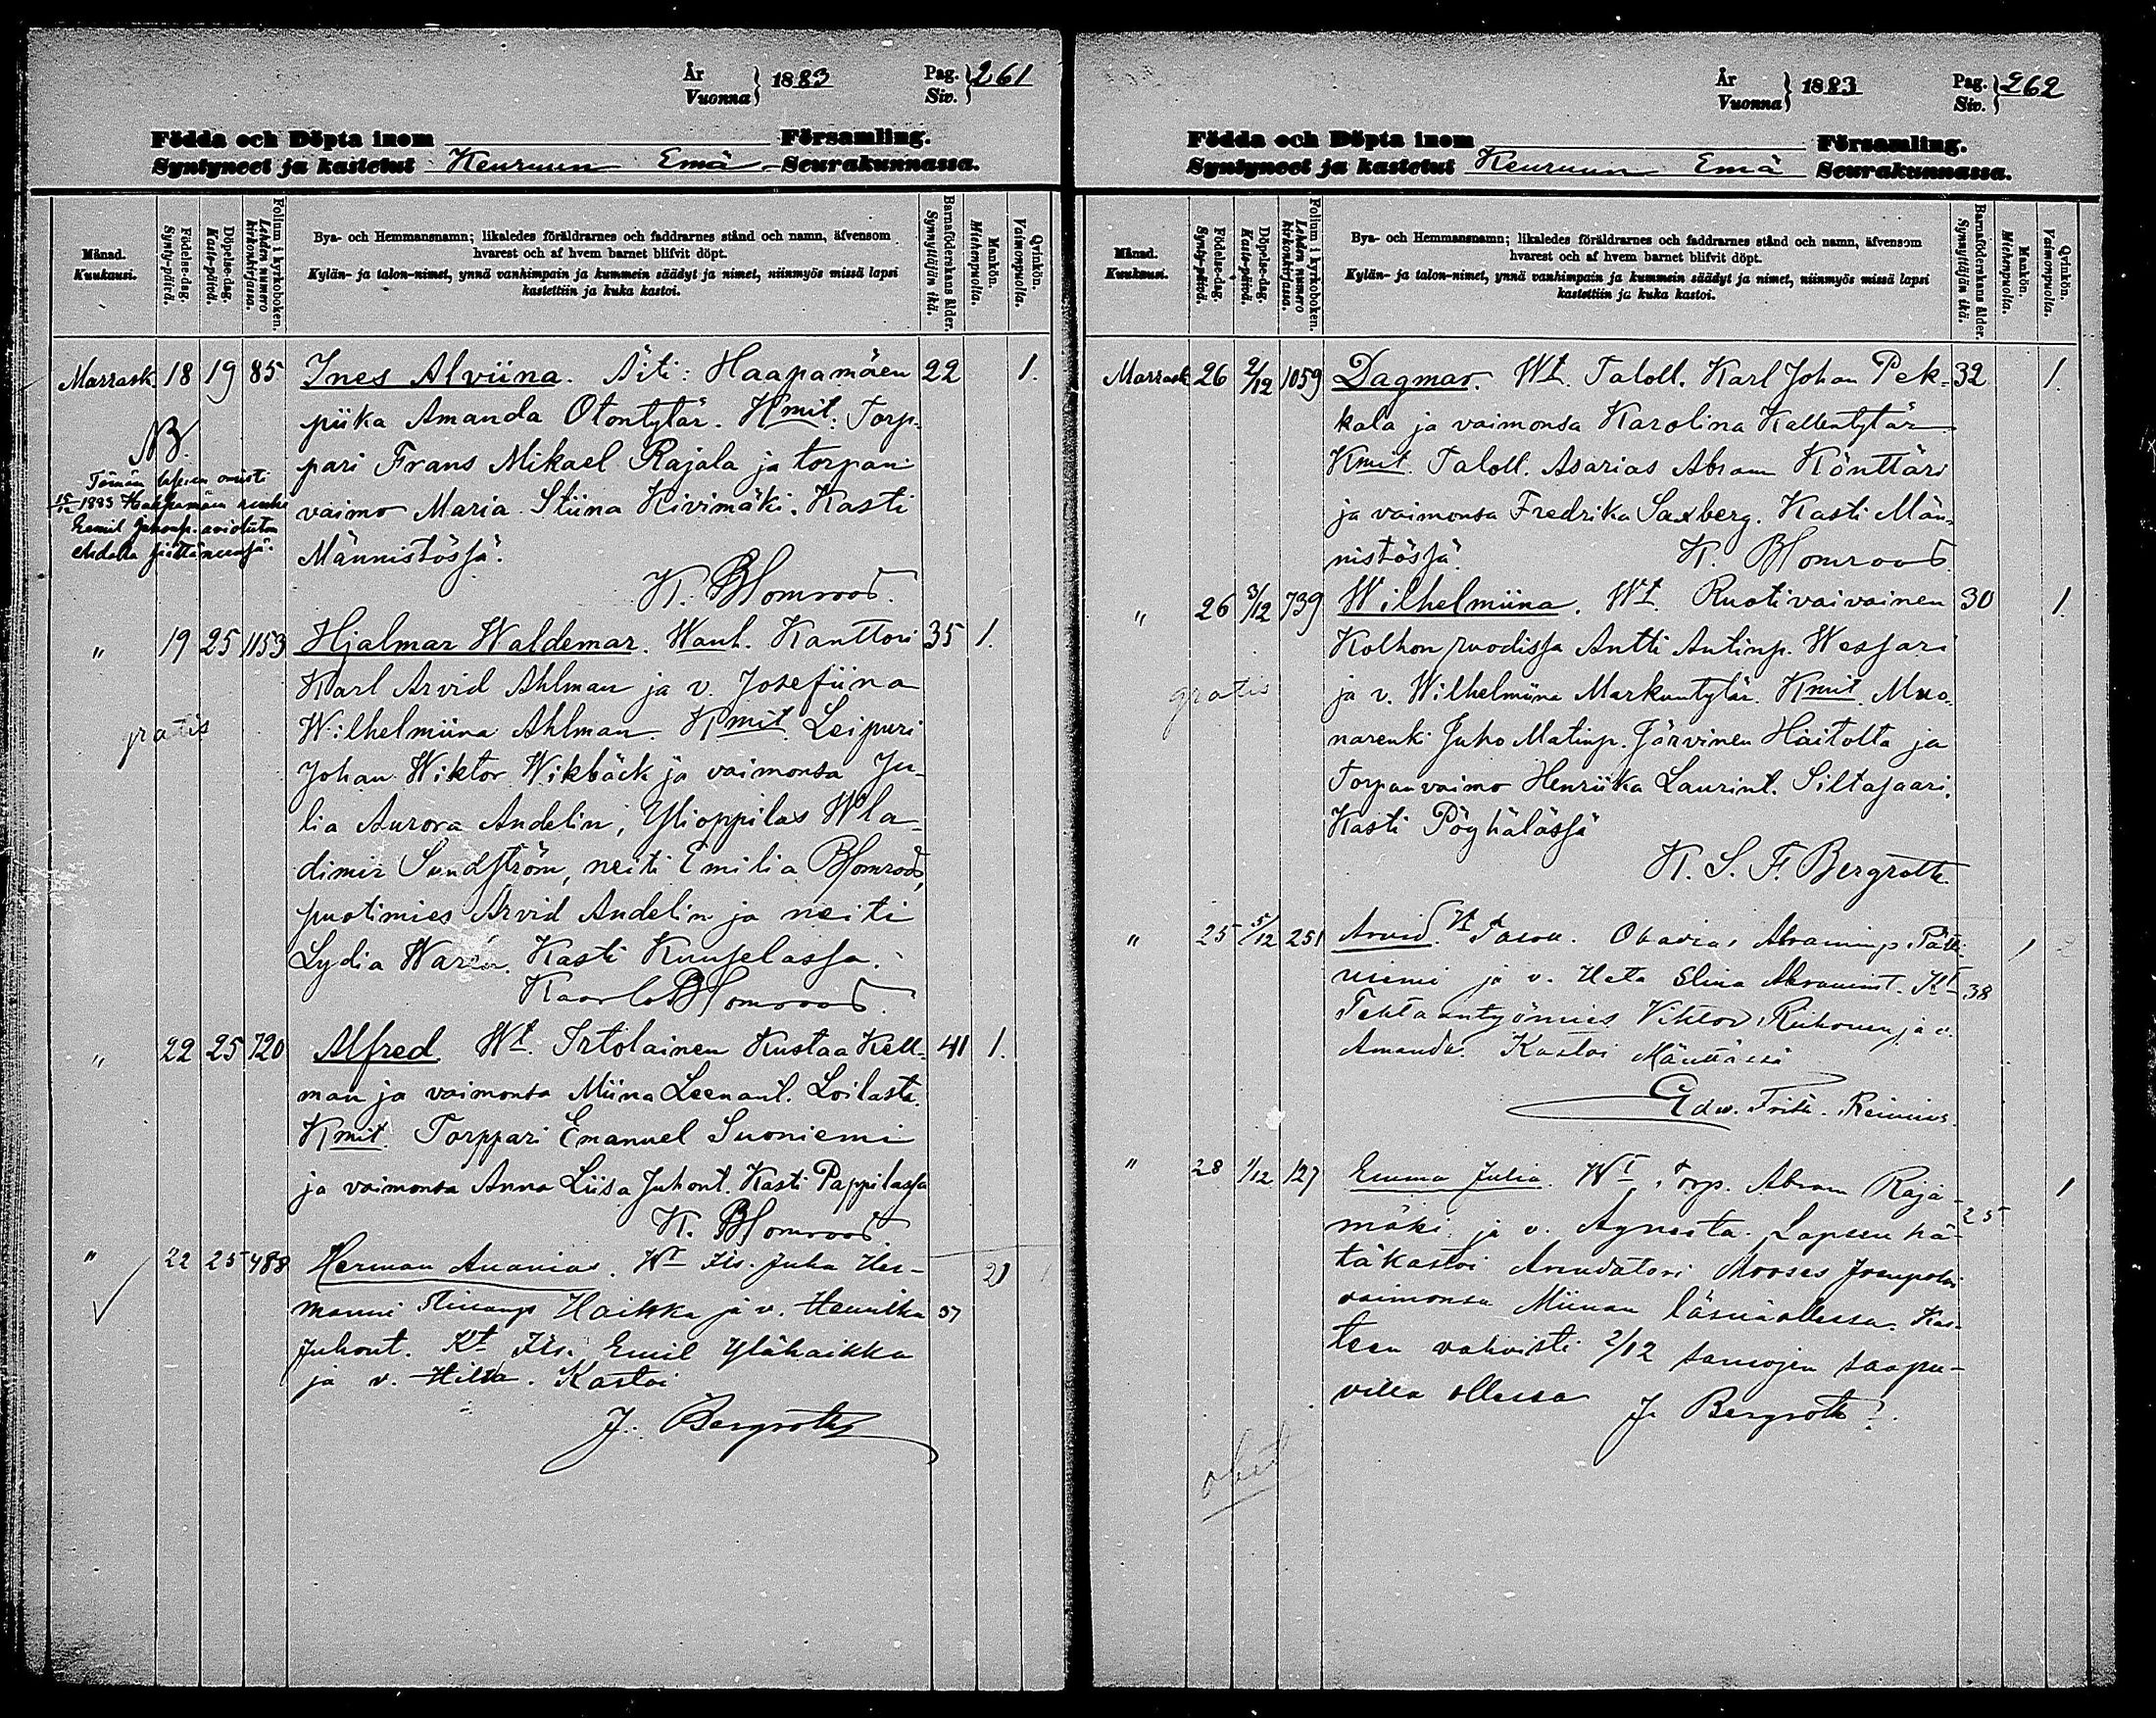 År
Vuonna } 1883
Pag.
Siv. } 261
Födda och Döpta inom Församling.
Syntyneet ja kastetut Keuruun Emä Seurakunnassa.
Månad.
Kuukausi.
Födelse-dag.
Synty-päivä.
Döpelse-dag.
Kaste-päivä.
Folium i kyrkoboken.
Lehden numero
kirkonkirjassa.
Bya- och Hemmansnamn; likaledes föräldrarnes och faddrarnes stånd och namn, äfvensom
hvarest och af hvem barnet blifvit döpt.
Kylän- ja talon-nimet, ynnä vanhimpain ja kummein säädyt ja nimet, niinmyös missä lapsi
kastettiin ja kuka kastoi.
Barnaföderskans ålder.
Synnyttäjän ikä.
Mankön.
Miehenpuolta.
Qvinkön.
Vaimonpuolta.
Marrask. 18 19 85 Ines Alviina. Äiti: Haapamäen 22 1.
piika Amanda Otontytär. Kmit: Torp-
pari Frans Mikael Rajala ja torpan
vaimo Maria Stiina Kivimäki. Kasti
Männistössä.
K. Blomroos.
NB.
Tämän lapsen omisti
1885 Haapamäen renki
Eemil avioliiton
ehdolla siittäneensä.
" 19 25 1153 Hjalmar Waldemar. Wanh. Kanttori 35 1.
Karl Arvid Ahlman ja v. Josefiina
Wilhelmiina Ahlman. Kmit. Leipuri
gratis
Johan Wiktor Wikbäck ja vaimonsa Ju-
lia Aurora Andelin, Ylioppilas Wla-
dimir Sundström, neiti Emilia Blomroos,
puotimies Arvid Andelin ja neiti
Lydia Warén. Kasti
Kaarlo Blomroos.
" 22 25 720 Alfred. Wt. Irtolainen Kustaa Kell- 41 1.
man ja vaimonsa Miina Leenant. Loilasta.
Kmit. Torppari Emanuel Suoniemi
ja vaimonsa Anna Liisa Juhont. Kasti Pappilassa
K. Blomroos
" 22 25 488 Herman Ananias. Wt Its. Juha Her-
manni Haikka ja v. Henriika 37
Juhont. Kt Its. Emil Ylähaikka
ja v. Hilta. Kastoi
J. Bergroth
År
Vuonna } 1883
Pag.
Siv. } 262
Födda och Döpta inom Församling.
Syntyneet ja kastetut Keuruun Emä Seurakunnassa.
Månad.
Kuukausi.
Födelse-dag.
Synty-päivä.
Döpelse-dag.
Kaste-päivä.
Folium i kyrkoboken.
Lehden numero
kirkonkirjassa.
Bya- och Hemmansnamn; likaledes föräldrarnes och faddrarnes stånd och namn, äfvensom
hvarest och af hvem barnet blifvit döpt.
Kylän- ja talon-nimet, ynnä vanhimpain ja kummein säädyt ja nimet, niinmyös missä lapsi
kastettiin ja kuka kastoi.
Barnaföderskans ålder.
Synnyttäjän ikä.
Mankön.
Miehenpuolta.
Qvinkön.
Vaimonpuolta.
Marrask 26 2/12 1059 Dagmar. Wt. Taloll. Karl Johan Pek- 32 1.
kala ja vaimonsa Karolina Kallentytär
Kmit. Taloll. Asarias Abram Könttäri
ja vaimonsa Fredrika Saxberg. Kasti Män-
nistössä. K. Blomroos.
" 26 3/12 739 Wilhelmiina. Wt. Ruotivaivainen 30 1.
Kolhon ruodissa Antti Antinp. Wessari
gratis
ja v. Wilhelmiina Markuntytär. Kmit. Muo-
narenki Juho Matinp. Järvinen Häitolta ja
Torpanvaimo Henriika Laurint. Siltasaari.
Kasti Pöyhälässä
K. S. F. Bergroth.
" 25 5/12 251 Arvid. Wt Obadias Abraminp. 1
niemi ja v. Heta Stina Abramint. Kt 38
Tehtaantyömies Viktor Riihonen ja v.
Amanda. Kastoi Mäntässä
Edw. Frith. Reinius.
" 28 1/12 127 Emma Julia. Wt. Torp. Abram Raja- 1
mäki ja v. Agneeta. Lapsen hä- 25
täkastoi Mooses
vaimonsa Miinan läsnäollessa. Kas-
teen vahvisti 2/12 samojen saapu-
villa ollessa J. Bergroth.
obiit